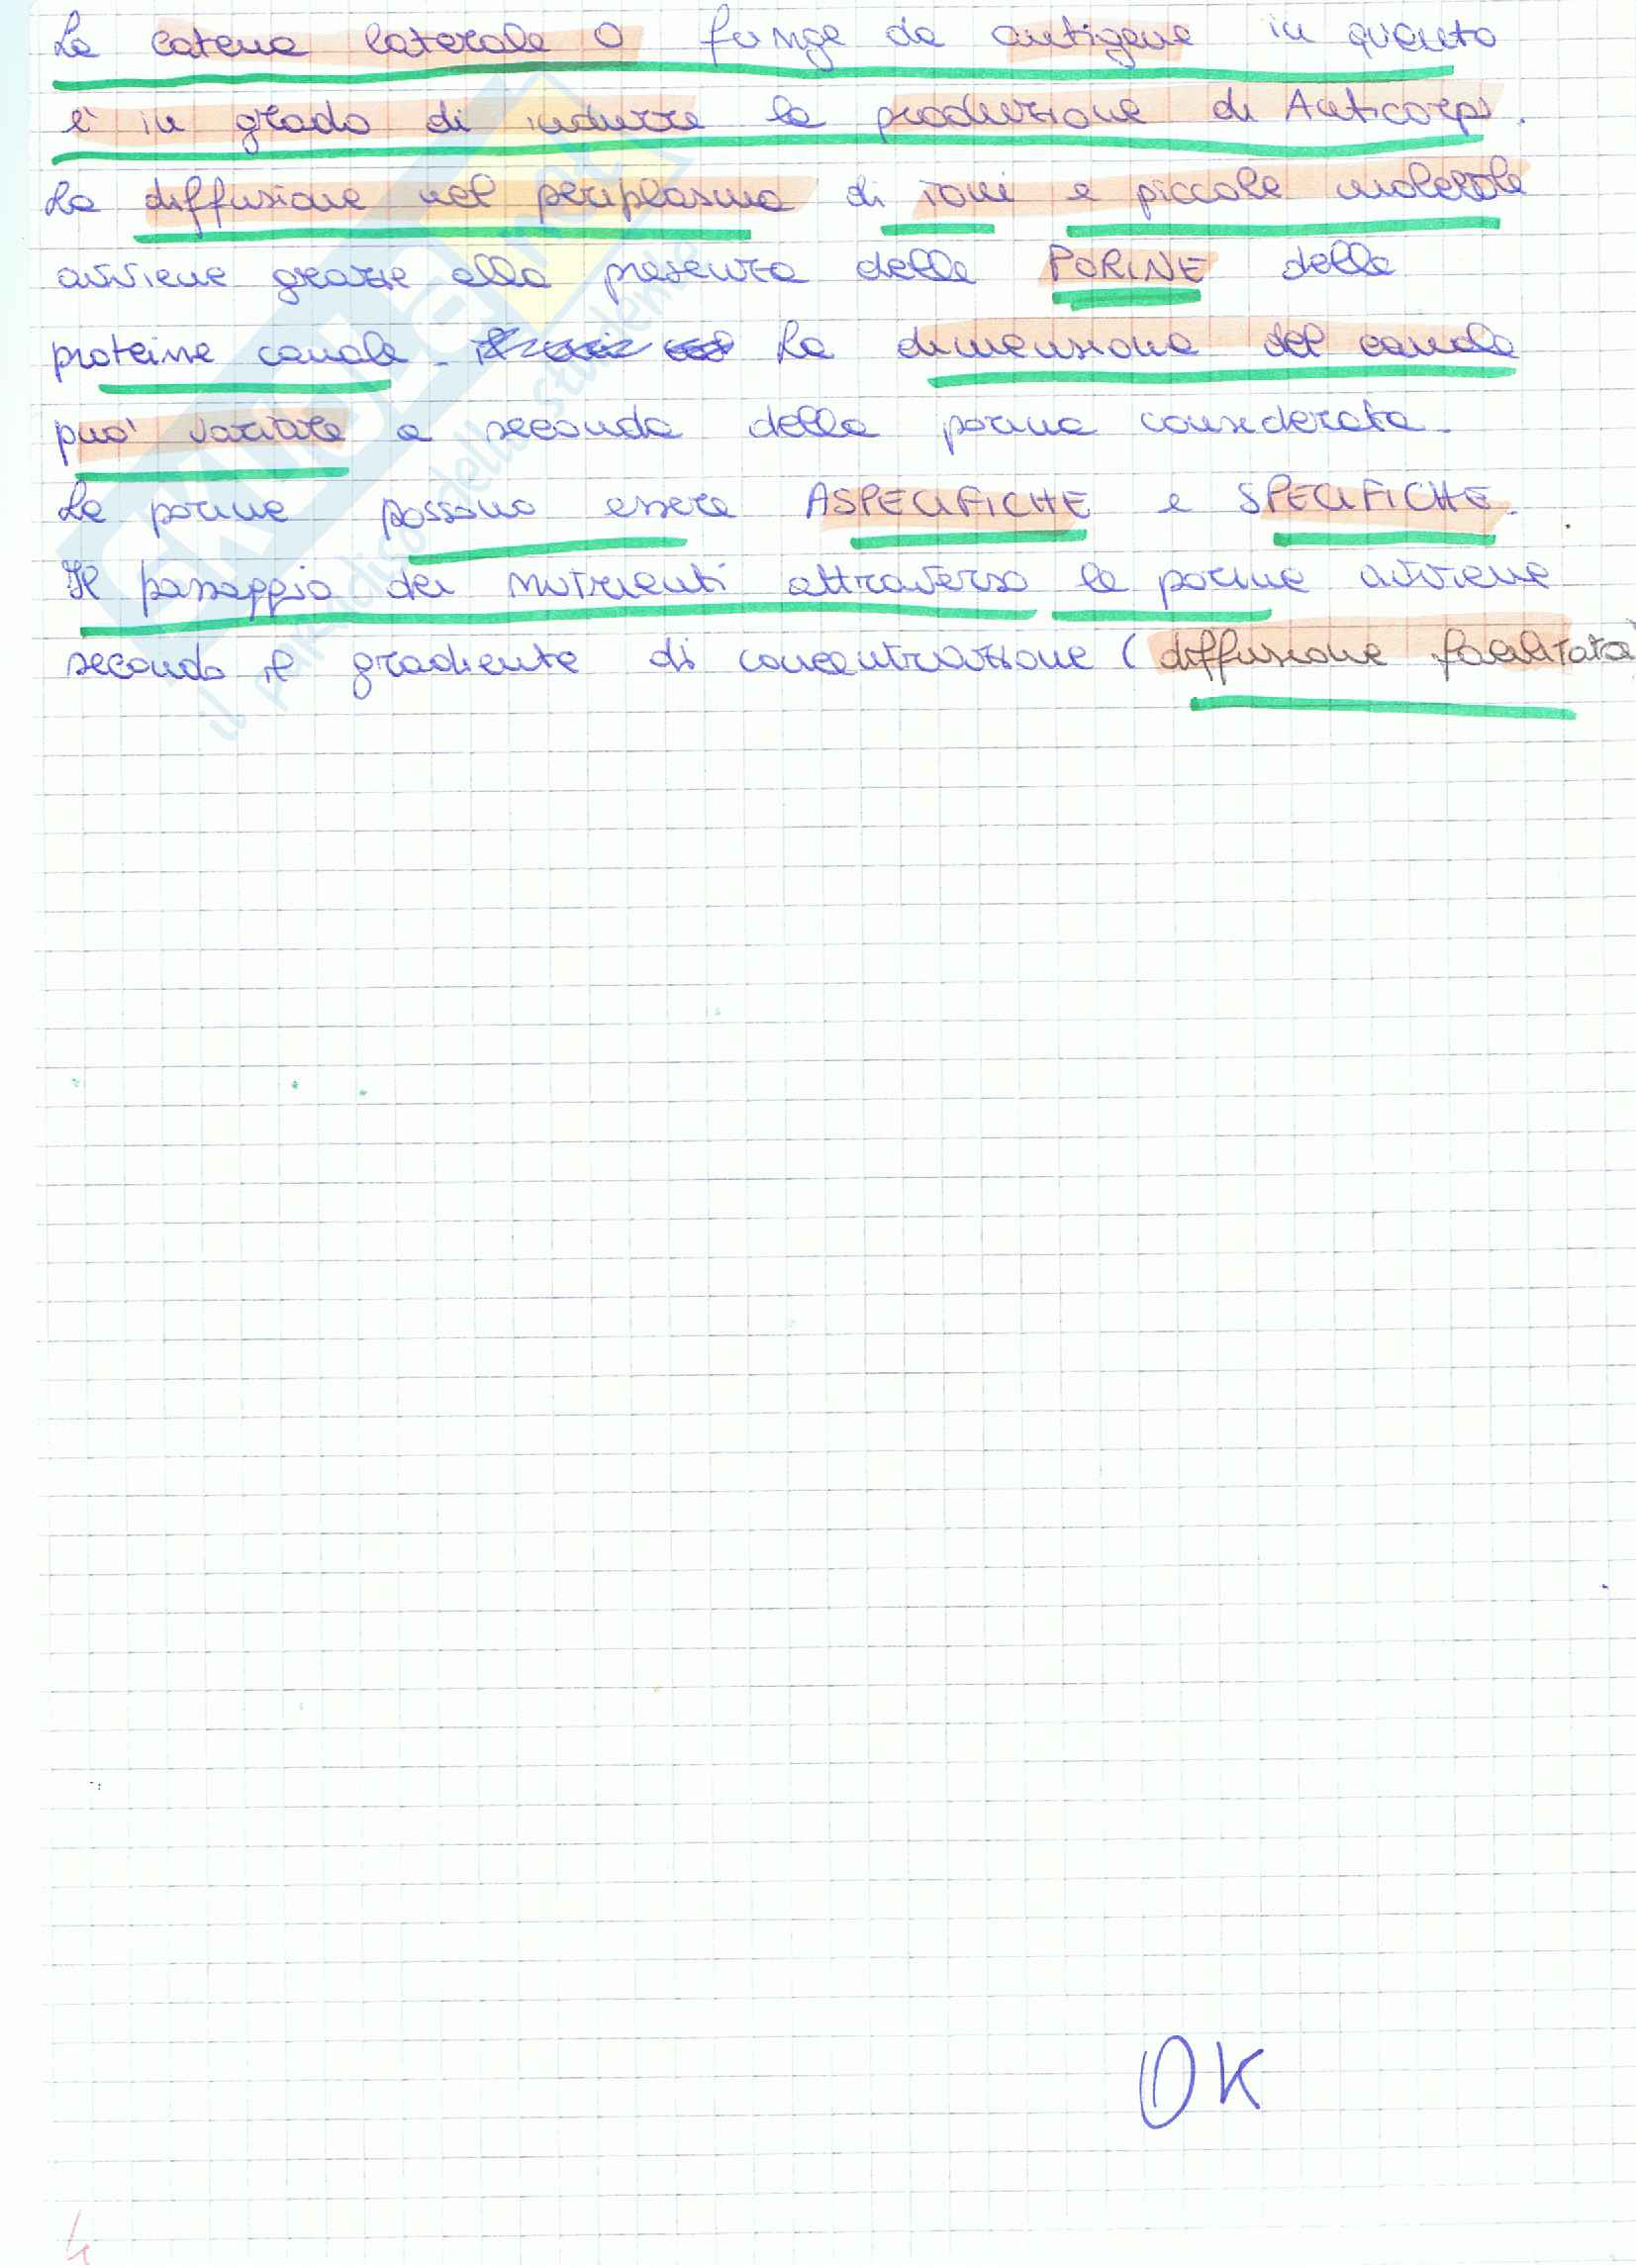 La catena laterale O funge da antigene in quanto
è in grado di indurre la produzione di Anticorpi.
La diffusione nel periplasma di ioni e piccole molecole
avviene grazie alla presenza delle PORINE delle
proteine canale. La dimensione del canale
può variare a seconda della porina considerata.
Le porine possono essere ASPECIFICHE e SPECIFICHE.
Il passaggio dei nutrienti attraverso le porine avviene
secondo il gradiente di concentrazione (diffusione facilitata)
il paradiso dello studente
OK
4